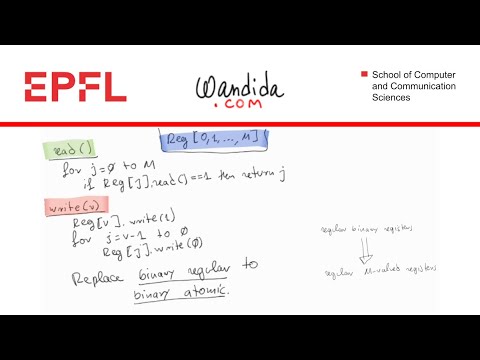 EPFL
Wandida
.COM
School of Computer
and Communication
Sciences
Reg [0,1,...,M]
read()
for j=0 to M
if Reg[j].read()==1 then return j
write(v)
Reg[v].write(1)
for j=v-1 to 0
Reg[j].write(0)
Replace binary regular to
binary atomic.
regular binary registers
regular M-valued registers